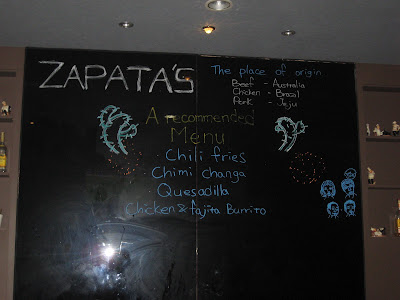 ZAPATA'S
The place of origin
Beef - Australia
Chicken - Brazil
Pork - Jeju
A recommended
Menu
Chili fries
Chimi changa
Quesadilla
Chicken & fajita Burrito